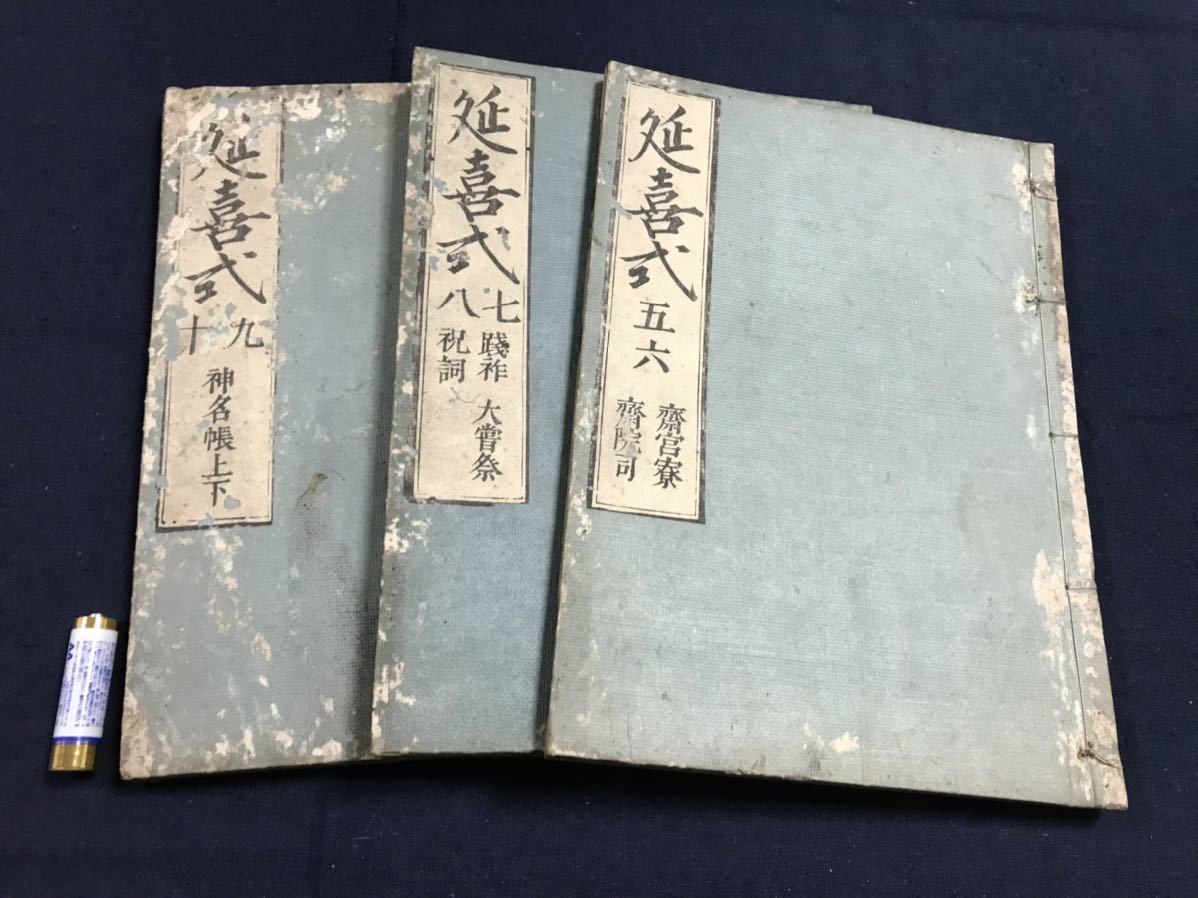 延喜式 五六
齋宮寮
齋院司
延喜式
七 踐祚 大嘗祭
八 祝詞
延喜式
九
十
神名帳上下